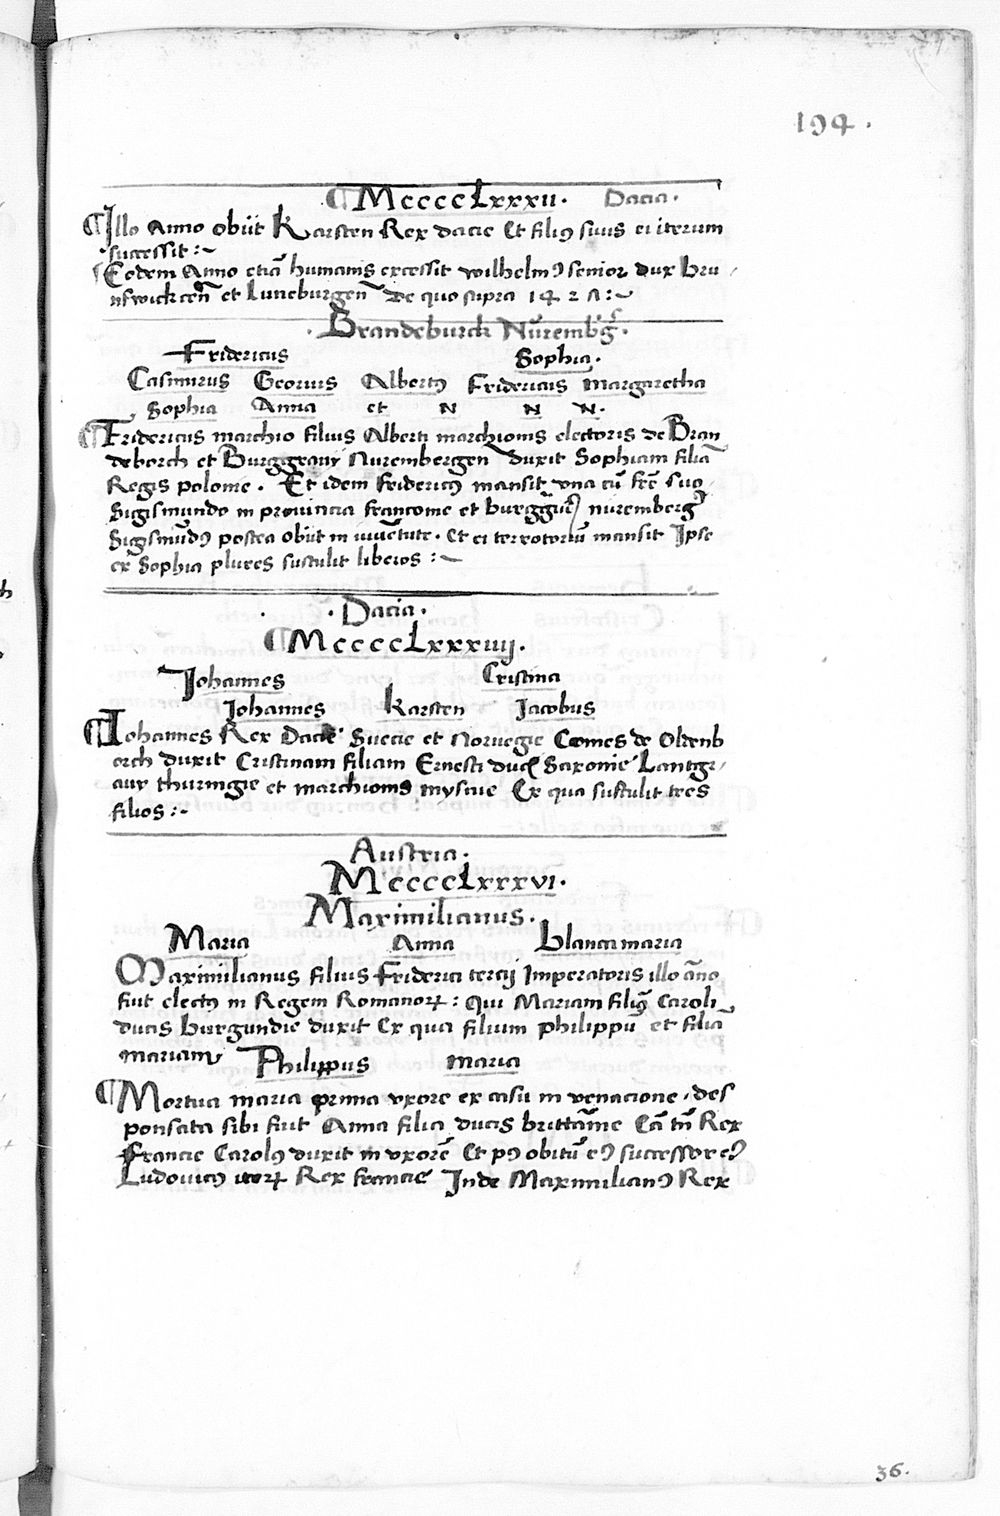 194.
¶ MccccLxxxii. Dacia.
¶ Illo Anno obiit Karsten Rex dacie Et filiꝰ suus ei iterum
successit :~
¶ Eodem Anno etiã humanis excessit wilhelmꝰ senior dux bru
nswickcen̄ et Luneburgen̄ De quo supra
. Brandeburck Nurembg̃.
Fridericus Sophia.
Casimirus Georius Albertꝰ Fridericus margaretha
Sophia Anna et N N N.
¶ Fridericus marchio filius Alberti marchionis electoris de Bran
deborch et Burggrauij Nurembergen̄ duxit Sophiam filiã
Regis polonie. Et idem fridericꝰ mansit vna cũ fr̄e suo
Sigismundo in prouincia franconie et burggur̃ nuremberg̃
Sigismũdꝰ postea obiit in iuuẽtute. Et ei terrotoriũ mansit Ipse
ex Sophia plures sustulit liberos :~
. Dacia.
¶ MccccLxxxiiij.
Johannes Cristina
Johannes karsten Jacobus
¶ Iohannes Rex Dacie Suecie et Noruegie Comes de Oldenb
orch duxit Cristinam filiam Ernesti ducꝭ Saxonie Lantgr
auij thuringie et marchionis mysnie Ex qua sustulit tres
filios :~
Austria.
MccccLxxxvi.
Maximilianus.
Maria Anna blanca maria
Maximilianus filius Friderici tercij Imperatoris illo ãno
fuit electꝰ in Regem Romanoꝝ : Qui Mariam filiã Caroli
ducis burgundie duxit Ex qua filium philippũ et filiã
mariam Philippus maria
¶ Mortua maria prima vxore ex casu in venacione, des
ponsata sibi fuit Anna filia ducis brittãnie Cã tñ Rex
Francie Carolꝰ duxit in vxorẽ Et pꝰ obitũ eꝰ successor eꝰ
Ludouicꝰ Rex francie Inde Maximilianꝰ Rex
36.